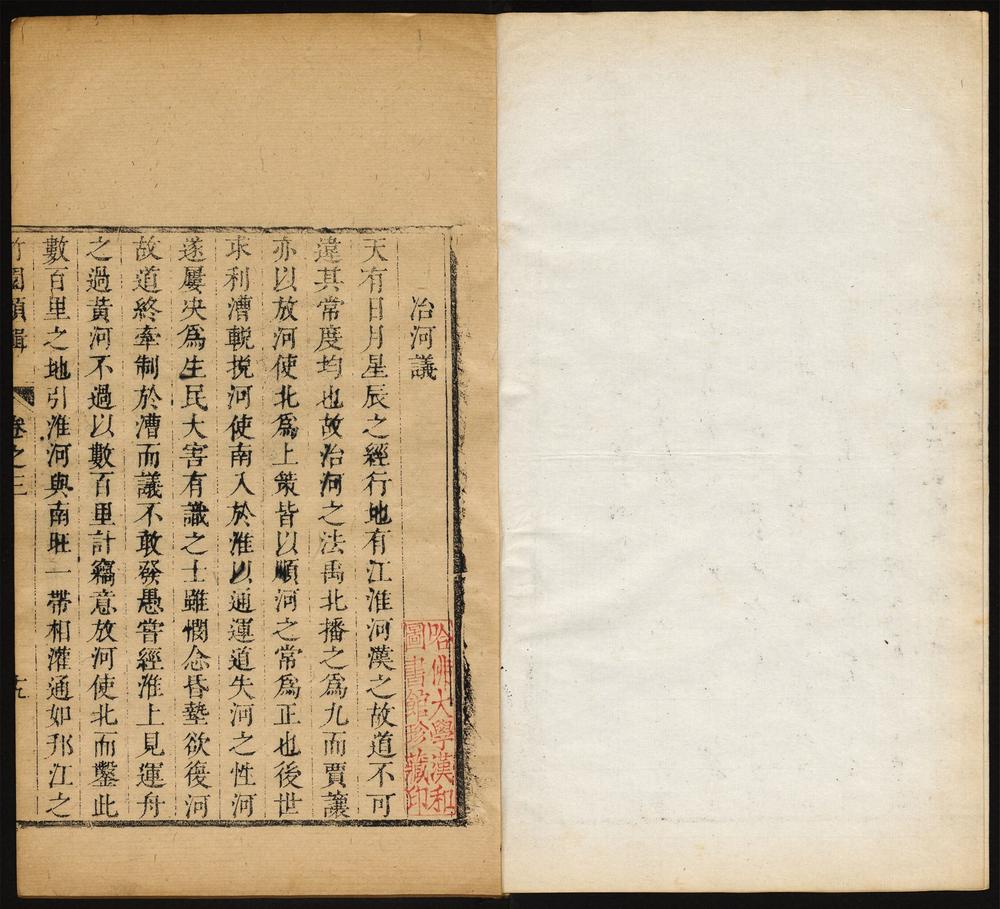 治河議
天有日月星辰之經行地有江淮河漢之故道不可
違其常度均也故治河之法禹北播之爲九而賈讓
亦以放河使北爲上策皆以順河之常爲正也後世
求利漕輓挽河使南入於淮以通運道失河之性河
遂屢決爲生民大害有識之士雖憫念昏墊欲復河
故道終牽制於漕而議不敢發愚嘗經淮上見運舟
之過黃河不過以數百里計竊意放河使北而鑿此
數百里之地引淮河與南旺一帶相灌通如邗江之
竹園類輯 卷之三 十九
哈佛大學漢和
圖書館珍藏印